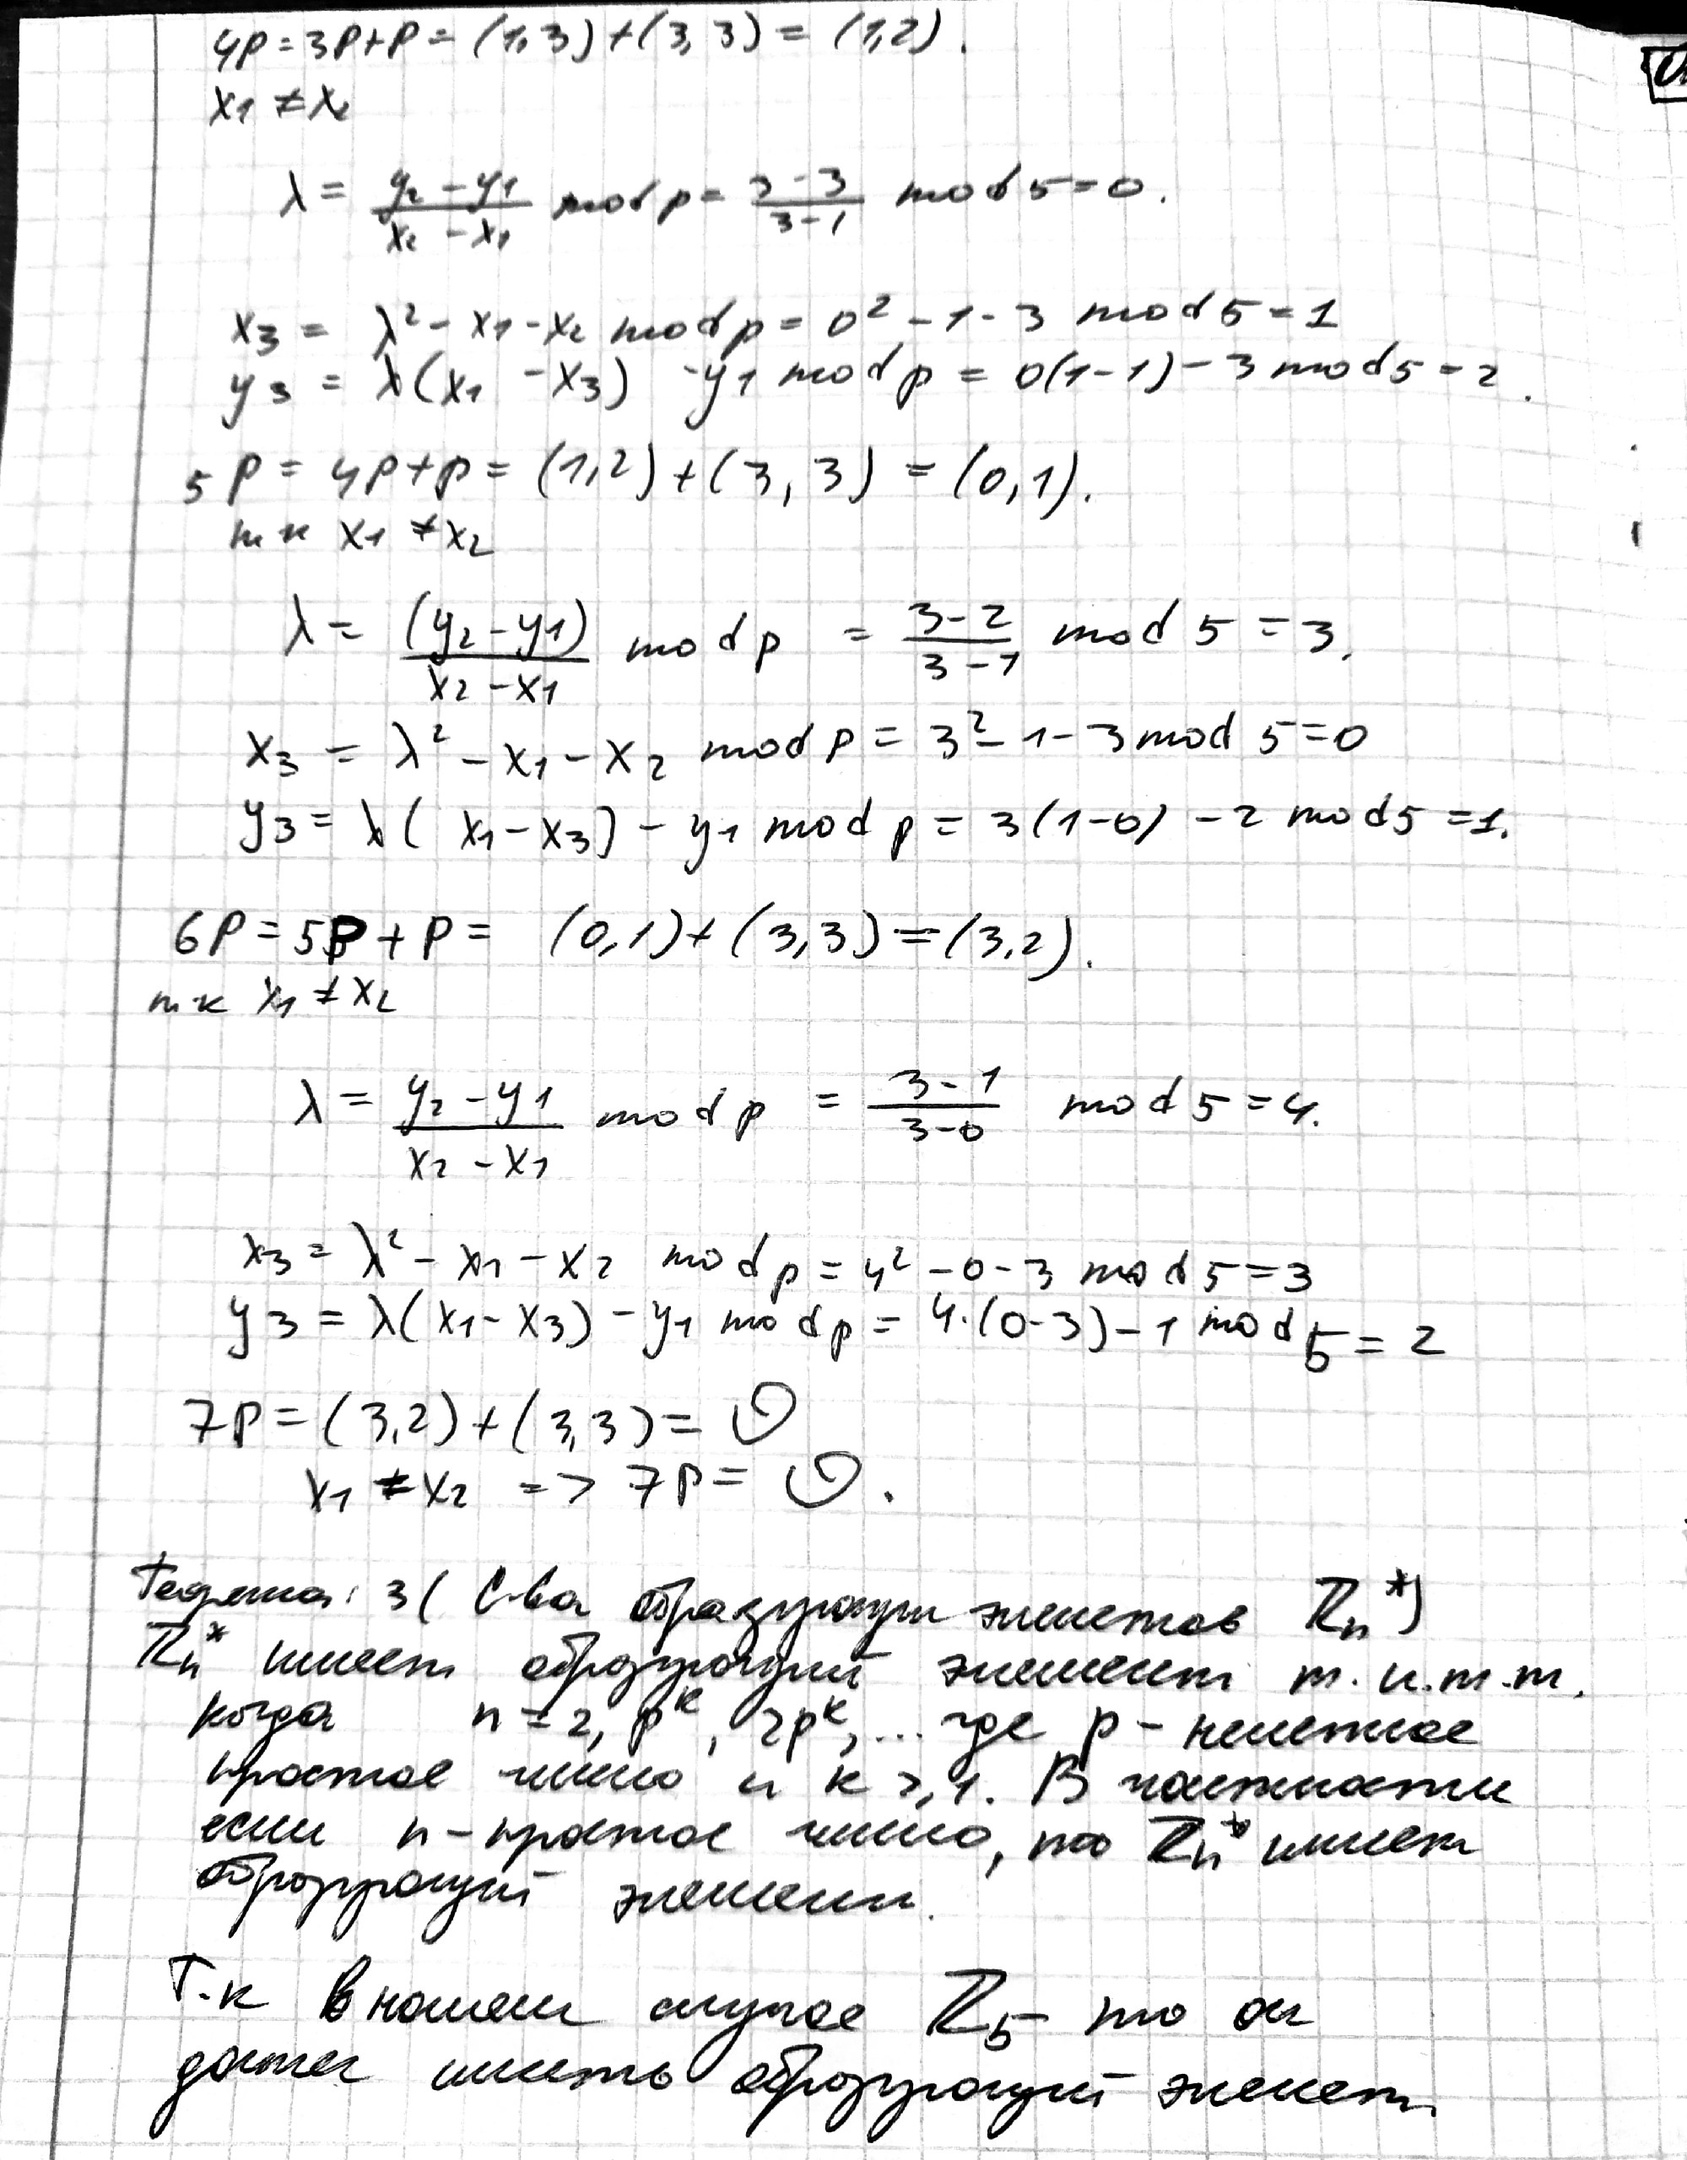 4P = 3P+P = (1,3)+(3,3) = (1,2).
x₁ ≠ x₂
λ = (y₂ - y₁)/(x₂ - x₁) mod p = (3-3)/(3-1) mod 5 = 0.
x₃ = λ² - x₁ - x₂ mod p = 0² - 1 - 3 mod 5 = 1
y₃ = λ(x₁ - x₃) - y₁ mod p = 0(1-1) - 3 mod 5 = 2.
5P = 4P+P = (1,2)+(3,3) = (0,1).
т к x₁ ≠ x₂
λ = (y₂ - y₁)/(x₂ - x₁) mod p = (3-2)/(3-1) mod 5 = 3.
x₃ = λ² - x₁ - x₂ mod p = 3² - 1 - 3 mod 5 = 0
y₃ = λ(x₁ - x₃) - y₁ mod p = 3(1-0) - 2 mod 5 = 1.
6P = 5P + P = (0,1)+(3,3) = (3,2).
т к x₁ ≠ x₂
λ = (y₂ - y₁)/(x₂ - x₁) mod p = (3-1)/(3-0) mod 5 = 4.
x₃ = λ² - x₁ - x₂ mod p = 4² - 0 - 3 mod 5 = 3
y₃ = λ(x₁ - x₃) - y₁ mod p = 4·(0-3) - 1 mod 5 = 2
7P = (3,2)+(3,3) = O
x₁ ≠ x₂ => 7P = O.
Теорема: 3 ( С-ва образующих элементов ℤn*)
ℤn* имеет образующий элемент т. и т. т.
когда n = 2, p^k, 2p^k, ... где p - нечетное
простое число и k ⩾ 1. В частности
если n - простое число, то ℤn* имеет
образующий элемент.
Т.к в нашем случае ℤ5 то он
должен иметь образующий элемент